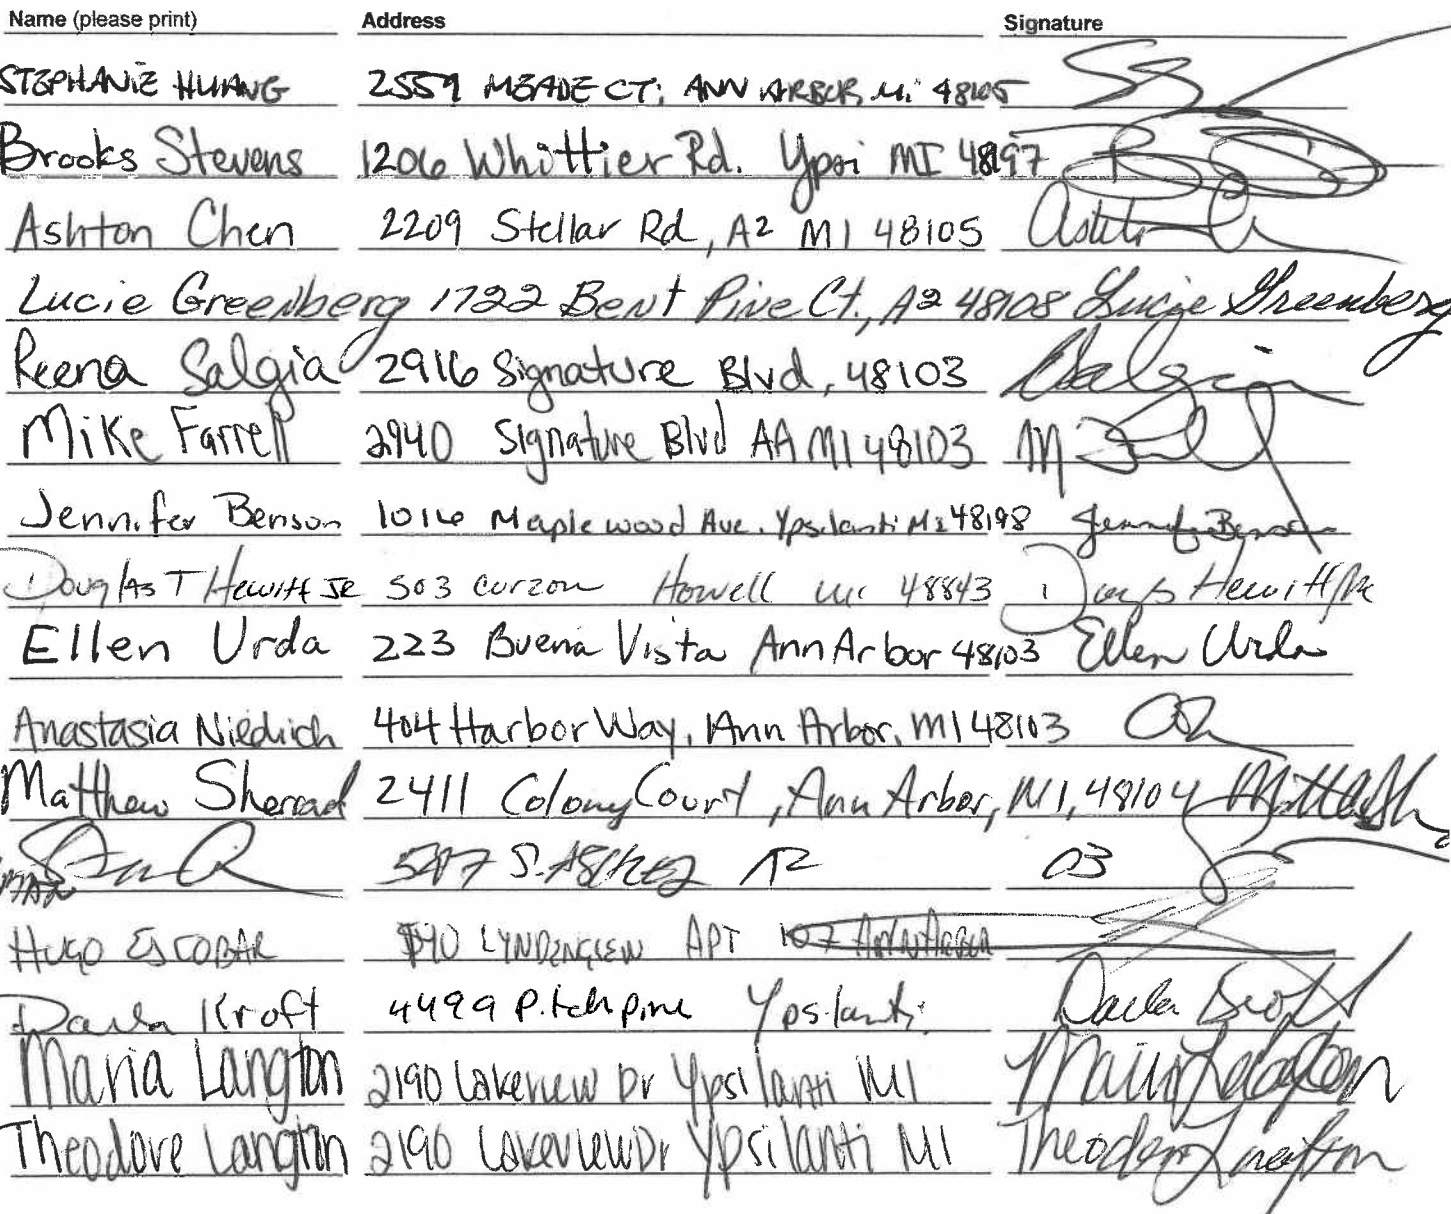 Name (please print) Address Signature
STEPHANIE HUANG 2559 MEADE CT, ANN ARBOR, Mi 48105
Brooks Stevens 1206 Whittier Rd. Ypsi MI 48197
Ashton Chen 2209 Stellar Rd, A2 MI 48105
Lucie Greenberg 1722 Bent Pine Ct., A2 48108 Lucie Greenberg
Reena Salgia 2916 Signature Blvd, 48103 Salgia
Mike Farrell 2940 Signature Blvd AA MI 48103
Jennifer Benson 1016 Maplewood Ave. Ypsilanti MI 48198 Jennifer Benson
Douglas T Hewitt JR 503 curzon Howell mi 48843 Hewitt
Ellen Urda 223 Buena Vista Ann Arbor 48103 Ellen Urda
Anastasia Niedrich 404 Harbor Way, Ann Arbor, MI 48103
Matthew Sherrad 2411 Colony Court, Ann Arbor, MI, 48104
A2 03
HUGO ESCOBAR APT 107 Ann Arbor
Kroft 4499 Pitchpine Ypsilanti
Maria Langton 2190 Lakeview Dr Ypsilanti MI
Theodore Langton 2190 Lakeview Dr Ypsilanti MI Theodore Langton